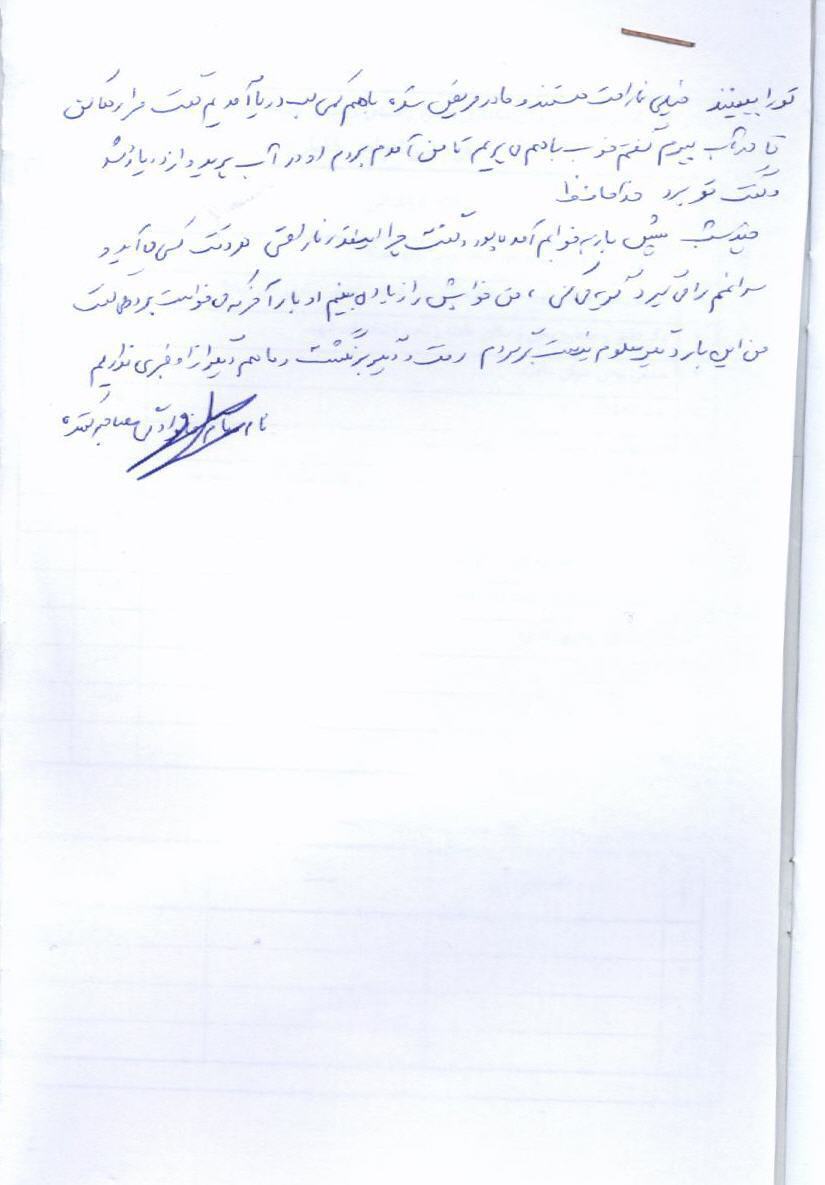 تو را ببینند خیلی ناراحت هستند و مادر مریض شده باهم کمی لب دریا آمدیم گفت مرا رها کن
تا در آب بپرم گفتم خوب باهم می‌پریم تا من آمدم بپرم او در آب پرید و از دریا رد شد
و گفت تو برو خداحافظ
چند شب پیش باز به خوابم آمده بود و گفت چرا اینقدر ناراحتی هر وقت کسی می‌آید و
سراغم را می‌گیرد گریه می‌کنی ، من خوابش را زیاد می‌بینم او بار آخر که می‌خواست برود گفت
من این بار دیگر معلوم نیست برگردم رفت و دیگر برنگشت و ما هم دیگر از او خبری نداریم
نام و نام مصاحبه کننده